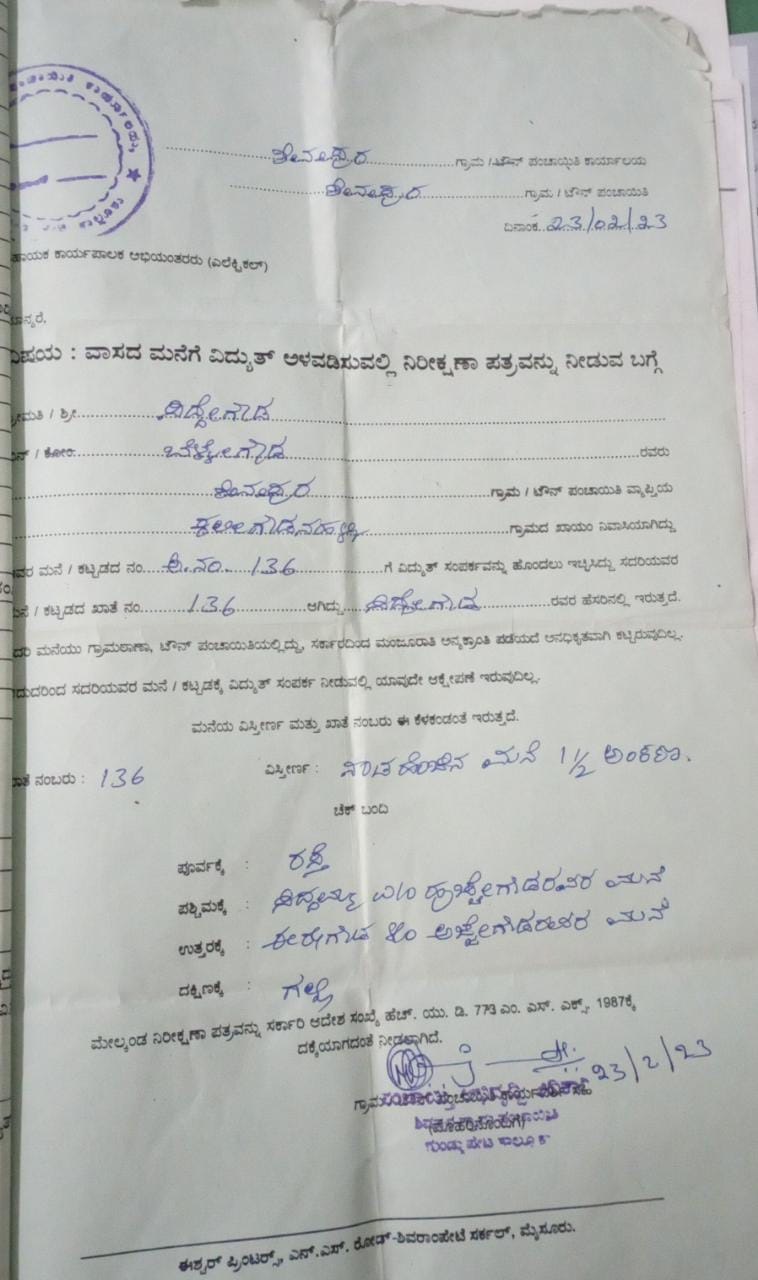 ಶಿವಪುರ ಗ್ರಾಮ / ಟೌನ್ ಪಂಚಾಯಿತಿ ಕಾರ್ಯಾಲಯ
ಶಿವಪುರ ಗ್ರಾಮ / ಟೌನ್ ಪಂಚಾಯಿತಿ
ದಿನಾಂಕ 23/02/23
ಹಾಯಕ ಕಾರ್ಯಪಾಲಕ ಅಭಿಯಂತರರು (ಎಲೆಕ್ಟ್ರಿಕಲ್)
ಮಾನ್ಯರೆ,
ವಿಷಯ : ವಾಸದ ಮನೆಗೆ ವಿದ್ಯುತ್ ಅಳವಡಿಸುವಲ್ಲಿ ನಿರೀಕ್ಷಣಾ ಪತ್ರವನ್ನು ನೀಡುವ ಬಗ್ಗೆ
ಶ್ರೀಮತಿ / ಶ್ರೀ ಸಿದ್ದೇಗೌಡ
ಬಿನ್ / ಕೋಂ ರವರು
ಶಿವಪುರ ಗ್ರಾಮ / ಟೌನ್ ಪಂಚಾಯಿತಿ ವ್ಯಾಪ್ತಿಯ
ಕಲೀಗೌಡನಹಳ್ಳಿ ಗ್ರಾಮದ ಖಾಯಂ ನಿವಾಸಿಯಾಗಿದ್ದು
ಇವರ ಮನೆ / ಕಟ್ಟಡದ ನಂ. ಅ.ನಂ. 136 ಗೆ ವಿದ್ಯುತ್ ಸಂಪರ್ಕವನ್ನು ಹೊಂದಲು ಇಚ್ಛಿಸಿದ್ದು ಸದರಿಯವರ
ಮನೆ / ಕಟ್ಟಡದ ಖಾತೆ ನಂ. 136 ಆಗಿದ್ದು ಸಿದ್ದೇಗೌಡ ರವರ ಹೆಸರಿನಲ್ಲಿ ಇರುತ್ತದೆ.
ಸದರಿ ಮನೆಯು ಗ್ರಾಮಠಾಣಾ, ಟೌನ್ ಪಂಚಾಯಿತಿಯಲ್ಲಿದ್ದು, ಸರ್ಕಾರದಿಂದ ಮಂಜೂರಾತಿ ಅನ್ಯಕ್ರಾಂತಿ ಪಡೆಯದೆ ಅನಧಿಕೃತವಾಗಿ ಕಟ್ಟಿರುವುದಿಲ್ಲ.
ಆದುದರಿಂದ ಸದರಿಯವರ ಮನೆ / ಕಟ್ಟಡಕ್ಕೆ ವಿದ್ಯುತ್ ಸಂಪರ್ಕ ನೀಡುವಲ್ಲಿ ಯಾವುದೇ ಆಕ್ಷೇಪಣೆ ಇರುವುದಿಲ್ಲ.
ಮನೆಯ ವಿಸ್ತೀರ್ಣ ಮತ್ತು ಖಾತೆ ನಂಬರು ಈ ಕೆಳಕಂಡಂತೆ ಇರುತ್ತದೆ.
ಖಾತೆ ನಂಬರು : 136 ವಿಸ್ತೀರ್ಣ : ನಾಡಹೆಂಚಿನ ಮನೆ 1½ ಅಂಕಣ.
ಚೆಕ್ ಬಂದಿ
ಪೂರ್ವಕ್ಕೆ : ರಸ್ತೆ
ಪಶ್ಚಿಮಕ್ಕೆ : ಸಿದ್ದಮ್ಮ ಮನೆ
ಉತ್ತರಕ್ಕೆ : ಮನೆ
ದಕ್ಷಿಣಕ್ಕೆ : ಗಲ್ಲಿ
ಮೇಲ್ಕಂಡ ನಿರೀಕ್ಷಣಾ ಪತ್ರವನ್ನು ಸರ್ಕಾರಿ ಆದೇಶ ಸಂಖ್ಯೆ ಹೆಚ್. ಯು. ಡಿ. 773 ಎಂ. ಎಸ್. ಎಕ್ಸ್, 1987ಕ್ಕೆ
ದಕ್ಕೆಯಾಗದಂತೆ ನೀಡಲಾಗಿದೆ.
23/2/23
(ಮೊಹರಿನೊಂದಿಗೆ)
ಈಶ್ವರ್ ಪ್ರಿಂಟರ್ಸ್, ಎನ್.ಎಸ್. ರೋಡ್-ಶಿವರಾಂಪೇಟೆ ಸರ್ಕಲ್, ಮೈಸೂರು.